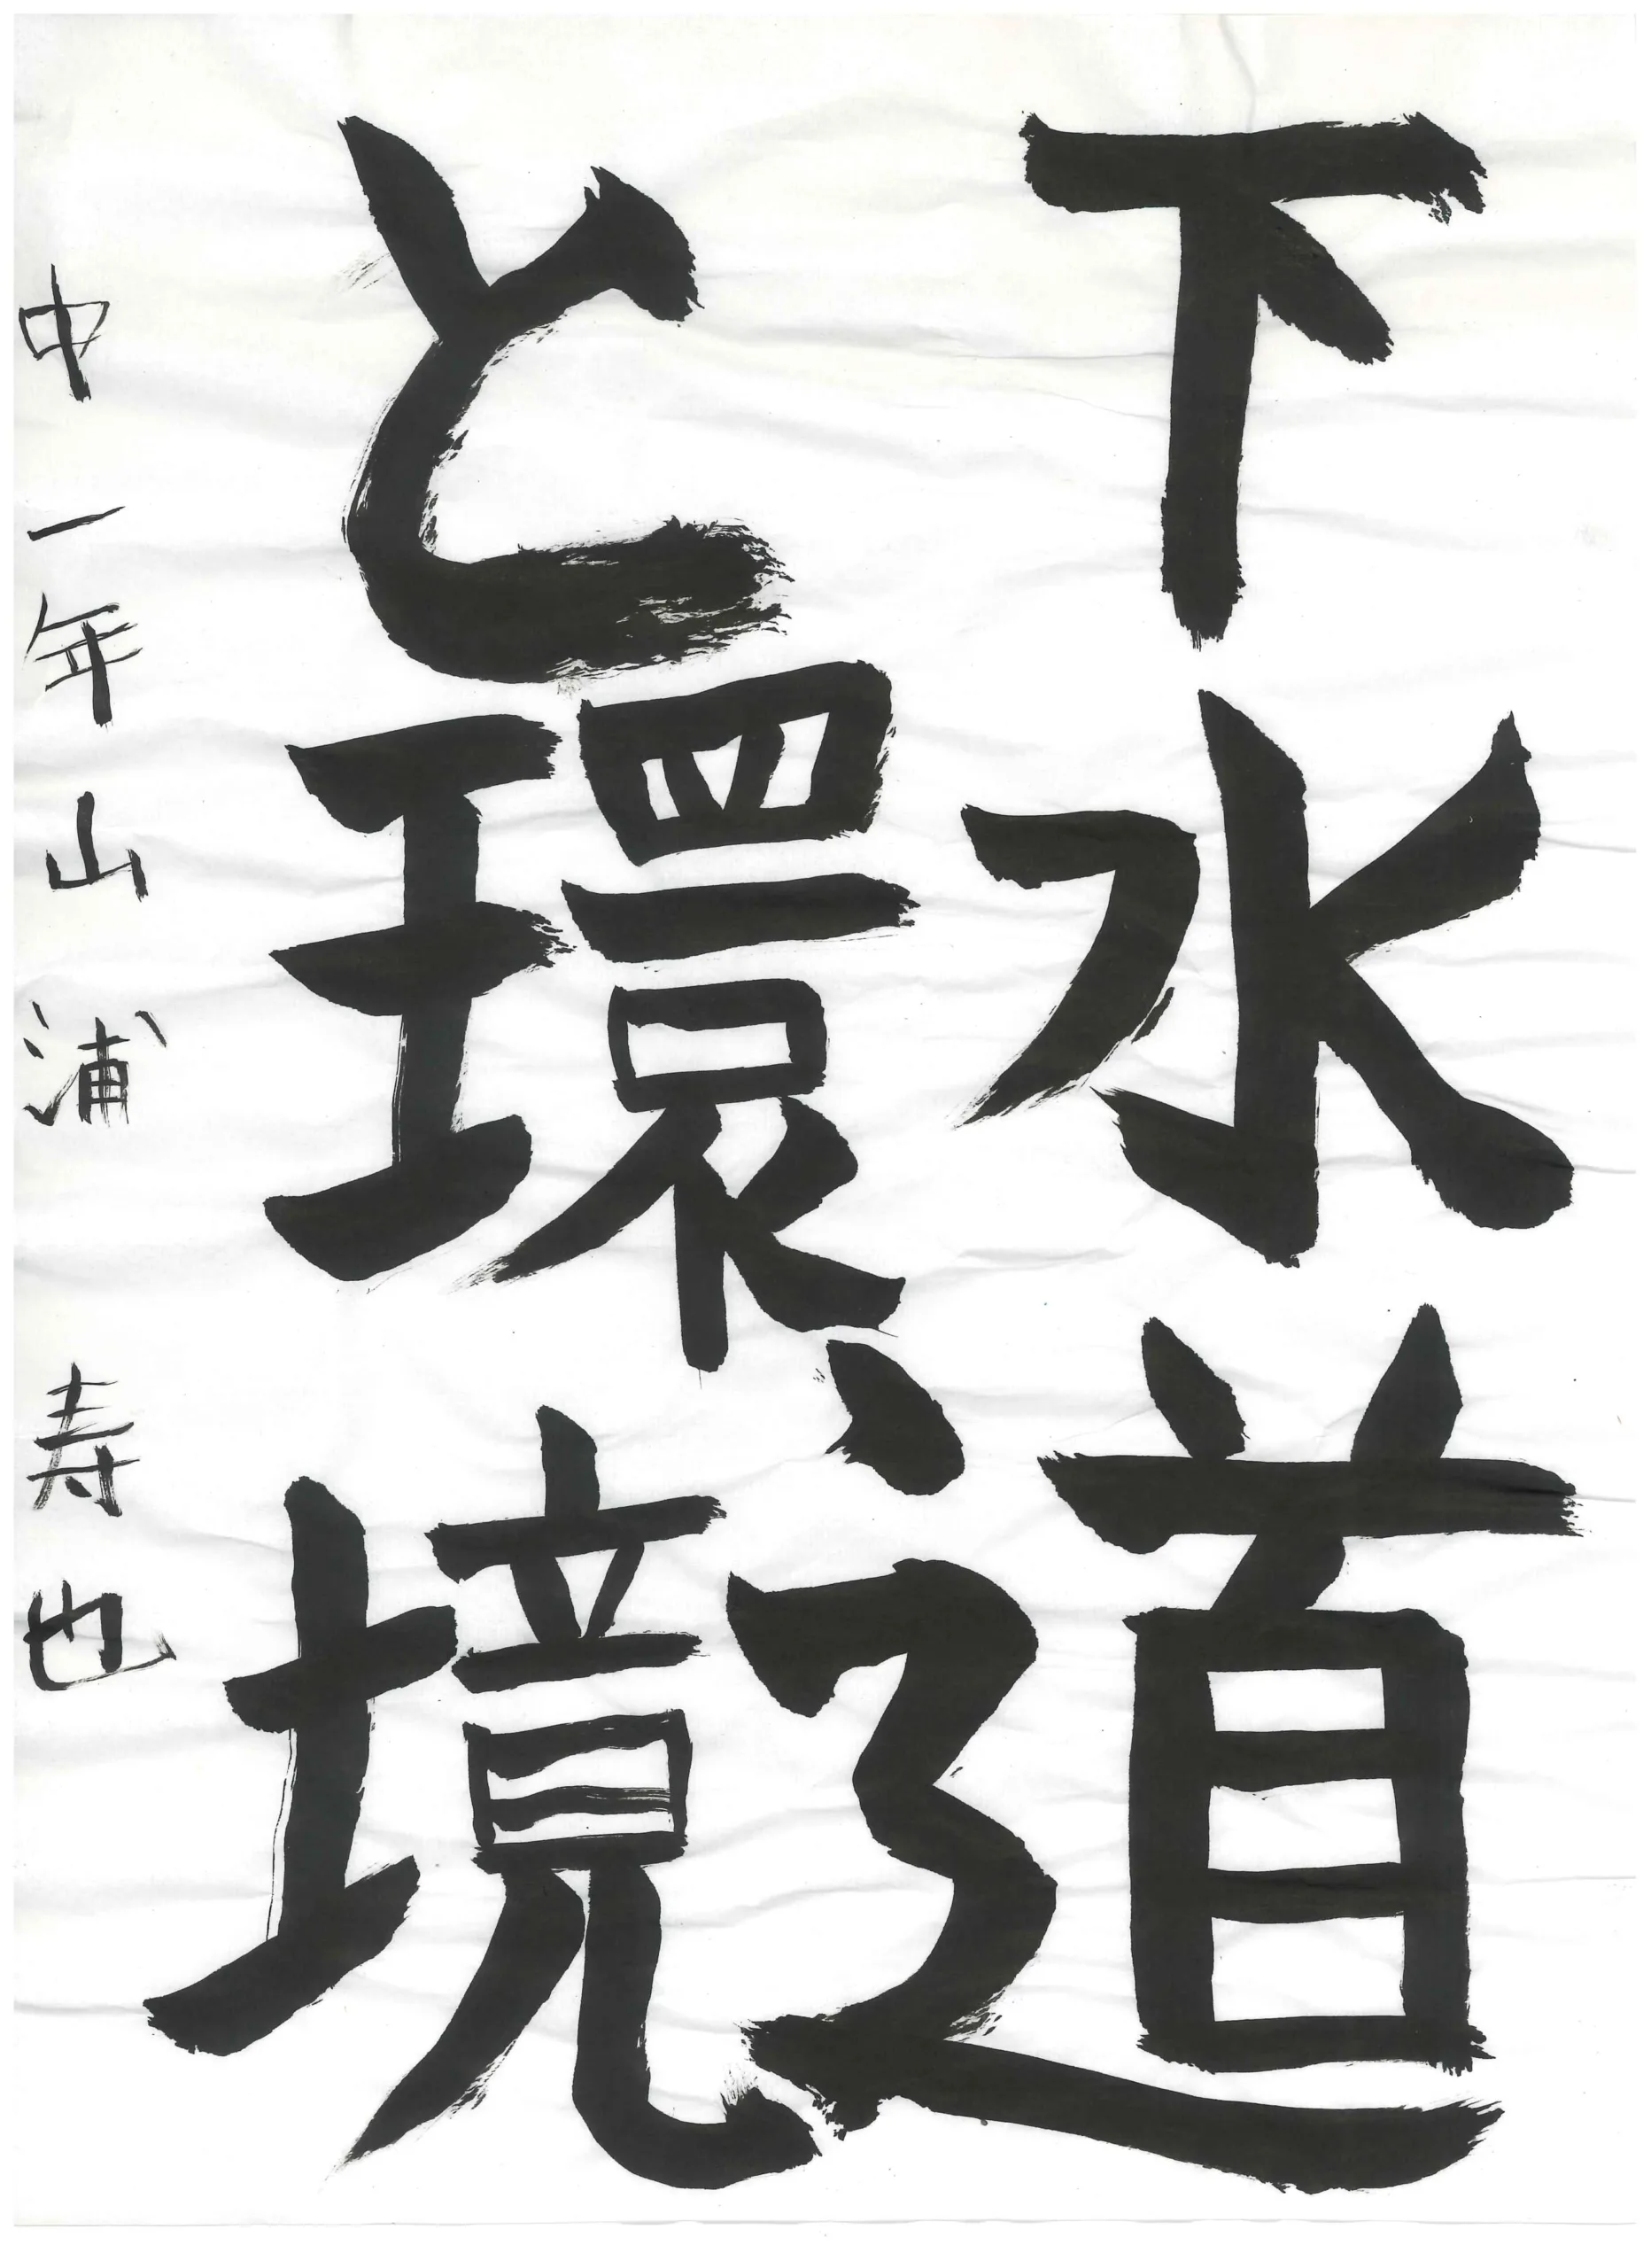 下水道
と環境
中一年山浦寿也